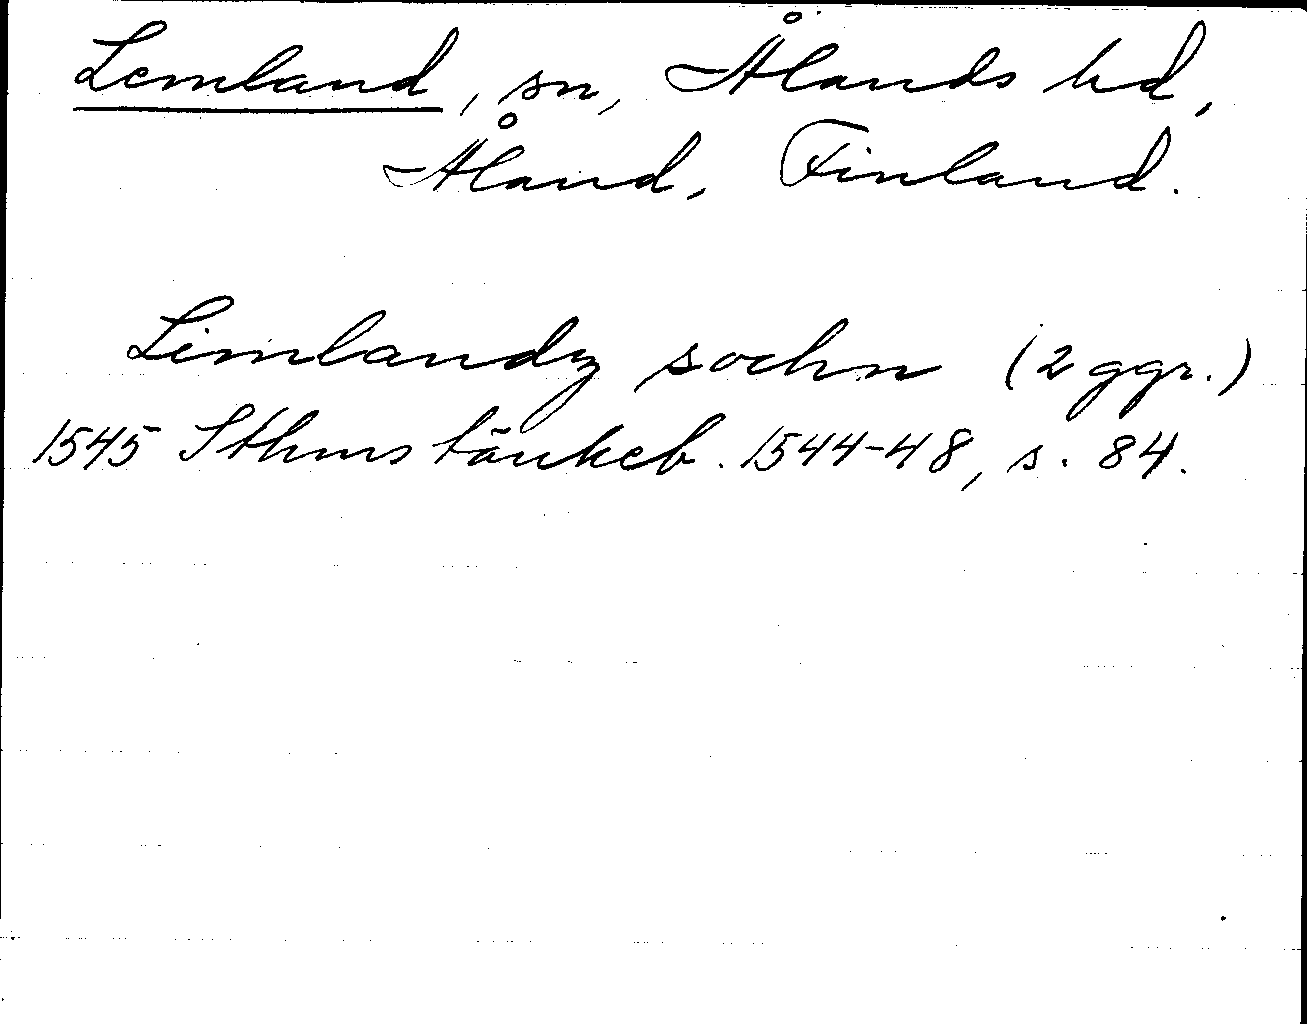 Lemland, sn, Ålands hd,
Åland, Finland.
Limlandz sochn (2 ggr.)
1545 Sthms tänkeb. 1544-48, s. 84.